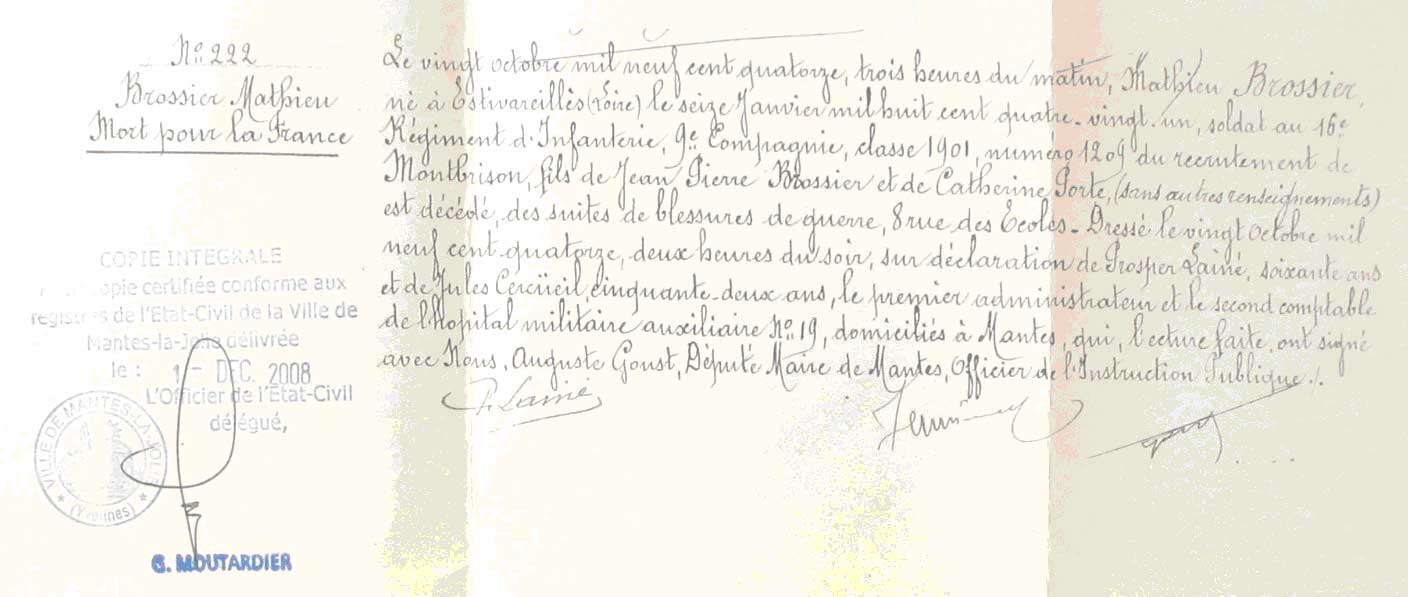 No 222
Brossier Mathieu
Mort pour la France
Le vingt octobre mil neuf cent quatorze, trois heures du matin, Mathieu Brossier,
né à Estivareilles (Loire) le seize Janvier mil huit cent quatre-vingt-un, soldat au 16e
Régiment d'Infanterie, 9e Compagnie, classe 1901, numéro 1209 du recrutement de
Montbrison, fils de Jean Pierre Brossier et de Catherine Porte, (sans autres renseignements)
est décédé, des suites de blessures de guerre, 8 rue des Ecoles - Dressé le vingt octobre mil
neuf cent quatorze, deux heures du soir, sur déclaration de Prosper Lainé, soixante ans
et de Jules Cercüeil, cinquante-deux ans, le premier administrateur et le second comptable
de l'hopital militaire auxiliaire No 19, domiciliés à Mantes, qui, lecture faite, ont signé
avec Nous, Auguste Goust, Député Maire de Mantes, Officier de l'Instruction Publique ./.
P. Lainé
COPIE INTEGRALE
copie certifiée conforme aux
registres de l'Etat-Civil de la Ville de
Mantes-la-Jolie délivrée
le : 1 - DEC. 2008
L'Officier de l'État-Civil
délégué,
VILLE DE MANTES-LA-JOLIE
(Yvelines)
G. MOUTARDIER